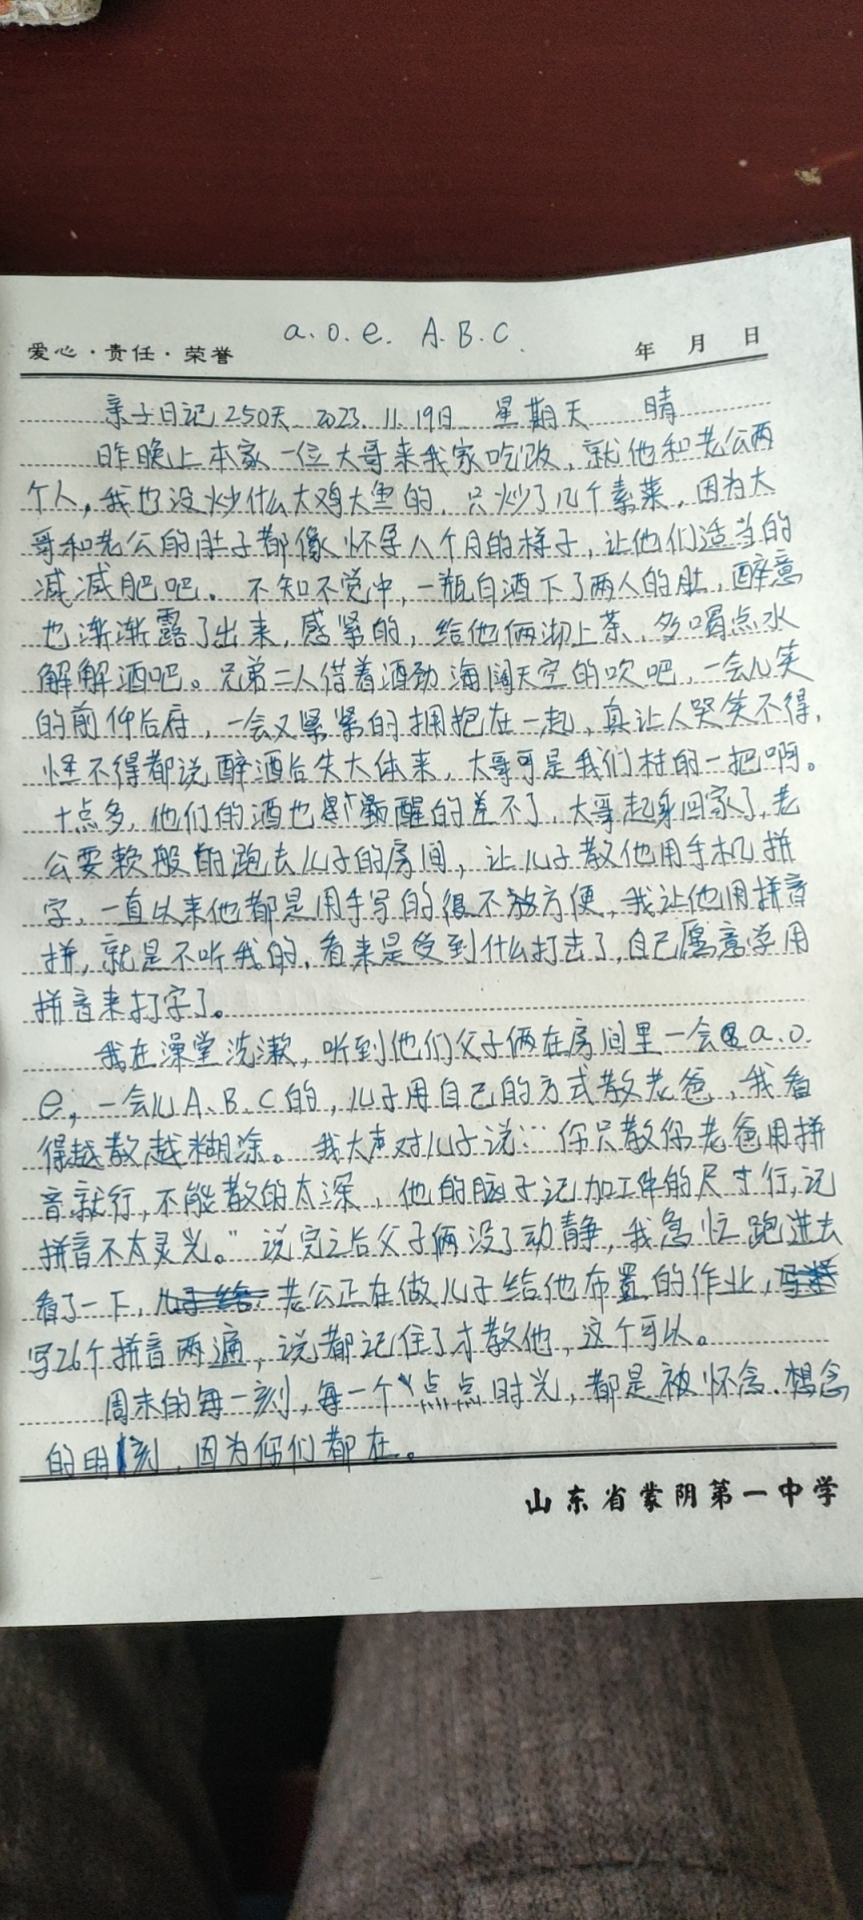 a.o.e. A.B.C.
爱心·责任·荣誉 年 月 日
亲子日记250天 2023.11.19日 星期天 晴
昨晚上本家一位大哥来我家吃饭,就他和老公两
个人,我也没炒什么大鸡大鱼的,只炒了几个素菜,因为大
哥和老公的肚子都像怀孕八个月的样子,让他们适当的
减减肥吧。不知不觉中,一瓶白酒下了两人的肚,醉意
也渐渐露了出来,感紧的,给他俩沏上茶,多喝点水
解解酒吧。兄弟二人借着酒劲海阔天空的吹吧,一会儿笑
的前仰后府,一会又紧紧的拥抱在一起,真让人哭笑不得,
怪不得都说醉酒后失大体来,大哥可是我们村的一把啊。
十点多,他们的酒也醒的差不了,大哥起身回家了,老
公耍赖般的跑去儿子的房间,让儿子教他用手机拼
字,一直以来他都是用手写的很不方便,我让他用拼音
拼,就是不听我的,看来是受到什么打击了,自己愿意学用
拼音来打字了。
我在澡堂洗漱,听到他们父子俩在房间里一会a.o.
e,一会儿A、B、C的,儿子用自己的方式教老爸,我看
得越教越糊涂。我大声对儿子说:“你只教你老爸用拼
音就行,不能教的太深,他的脑子记加工件的尺寸行,记
拼音不太灵光。”说完之后父子俩没了动静,我急忙跑进去
看了一下,老公正在做儿子给他布置的作业,
写26个拼音两遍,说都记住了才教他,这个可以。
周末的每一刻,每一个点点时光,都是被怀念、想念
的时刻,因为你们都在。
山东省蒙阴第一中学